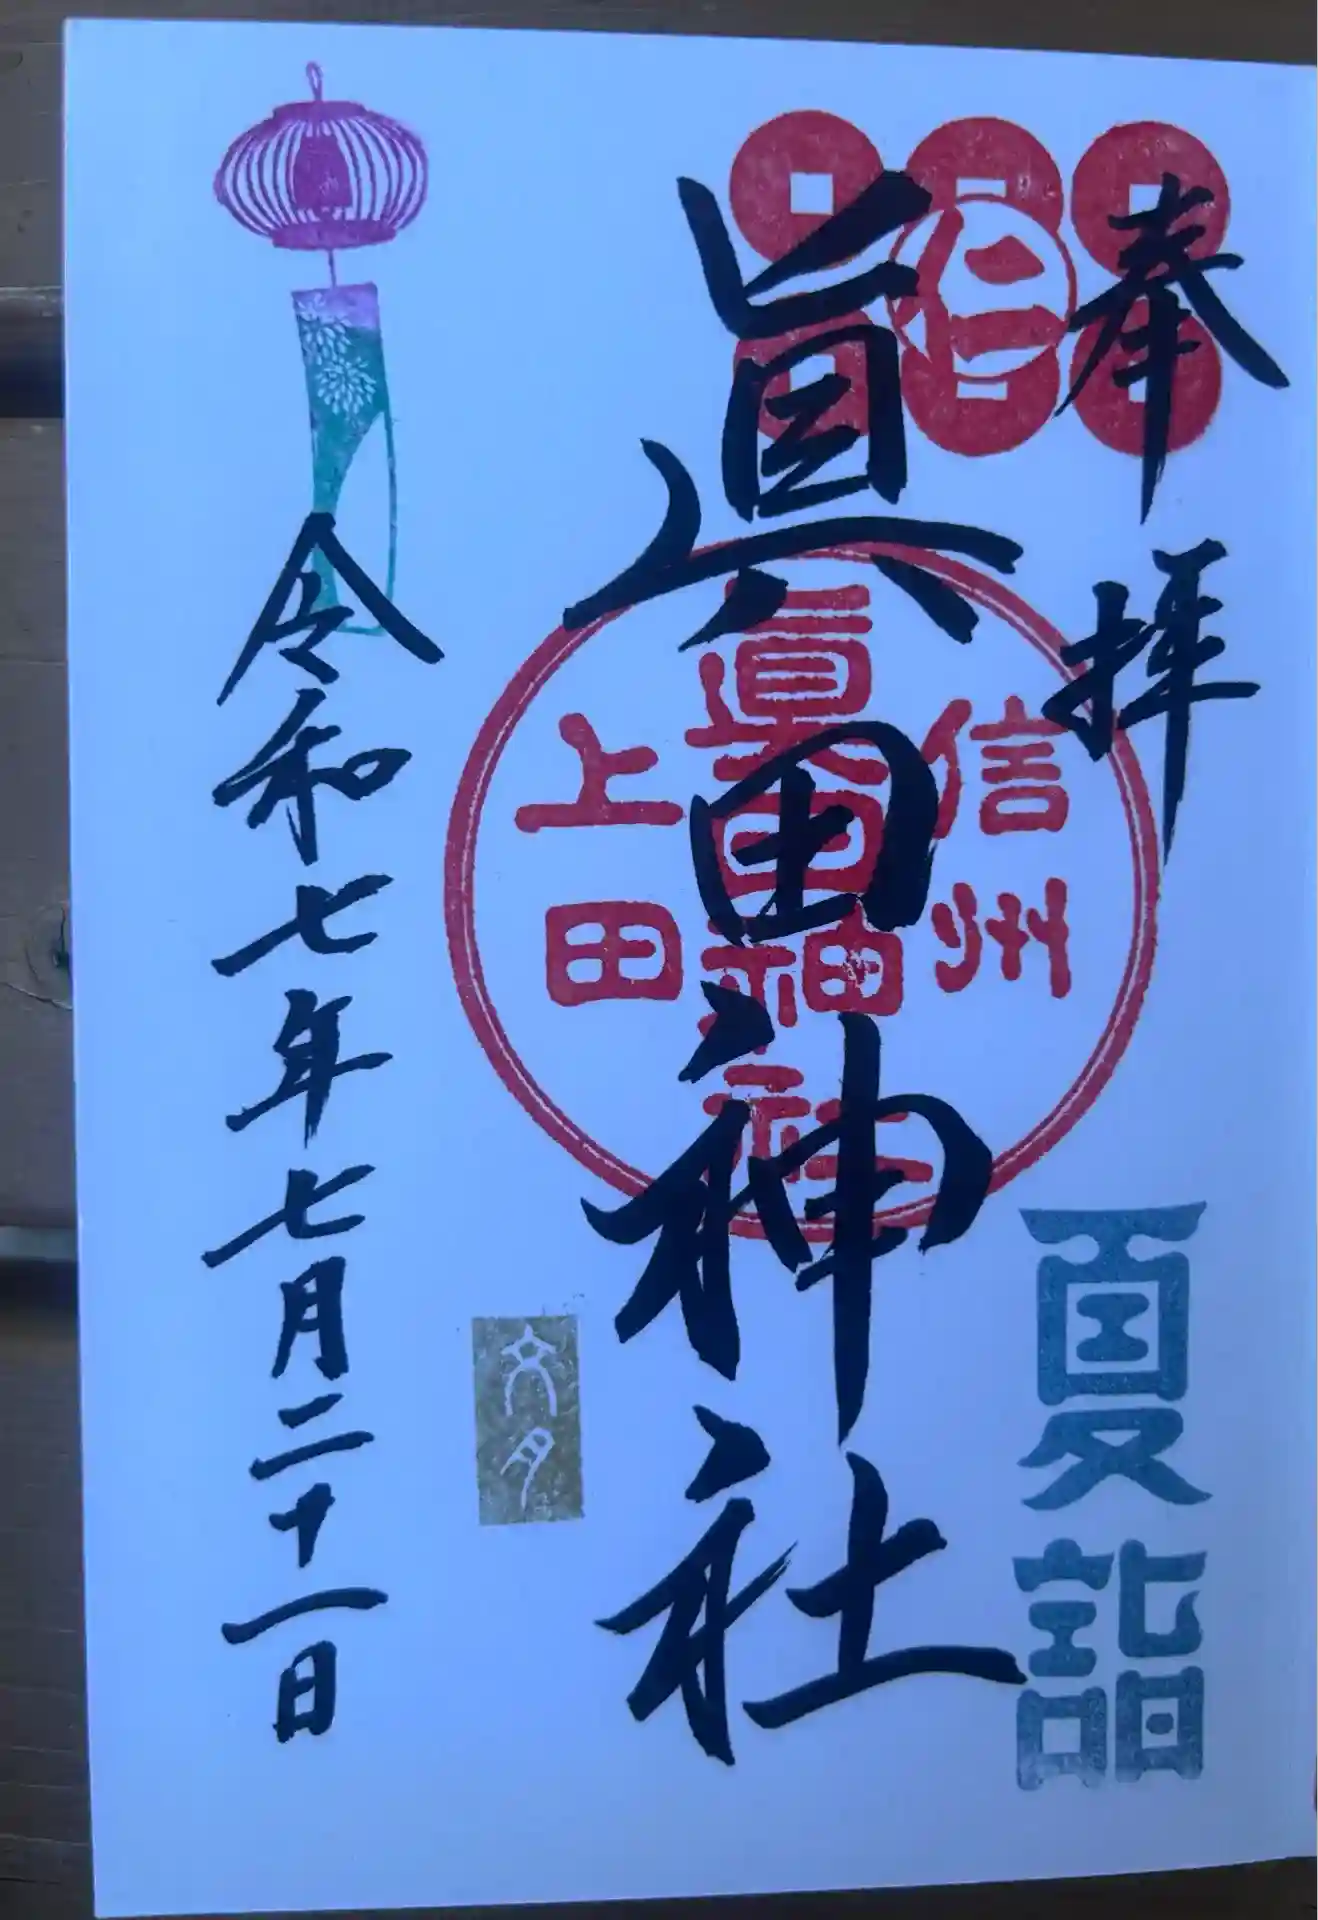 奉拝
仁
信州
眞田神社
上田
眞田神社
夏詣
文月
令和七年七月二十一日